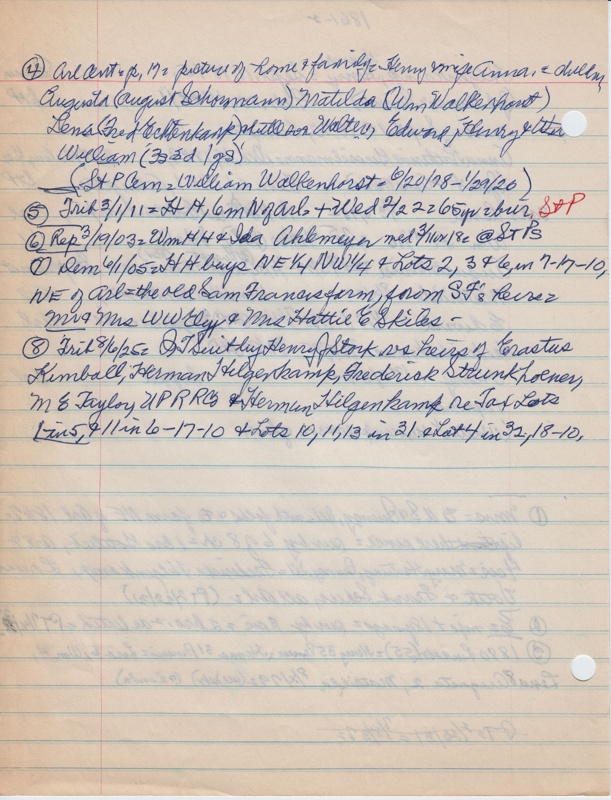 ④ Arl Cent = p, 17 = picture of home & family = Henry wife Anna. =
Augusta (August Schormann) Matilda (Wm Walkenhorst)
Lena (Fred Echtenkamp) Walter, Edward, Henry &
William
(St P Cem = William Walkenhorst = 6/20/78 - 1/29/20)
⑤ Trib 3/1/11 = H H, 6m N of Arl = + Wed 2/22 = 65yr = bur, St P
⑥ Rep 3/19/03 = Wm H H & Ida Ahlemeyer med @ St P's
⑦ Dem 9/1/05 = H H buys NE 1/4 NW 1/4 & Lots 2, 3 & 6, in 7-17-10,
NE of Arl = the old Sam Francis farm, from S F's heirs =
Mr & Mrs W W & Mrs Hattie E Skiles -
⑧ Trib 8/6/25 = Q T Suit by Henry J Stork vs heirs of Erastus
Kimball, Herman Hilgenkamp, Frederick Strunkhoener,
M E Taylor, U P R R Co & Herman Hilgenkamp re Tax Lots
1-in 5, & 11 in 6-17-10 & Lots 10, 11, 13 in 31 & Lot 4 in 32, 18-10,